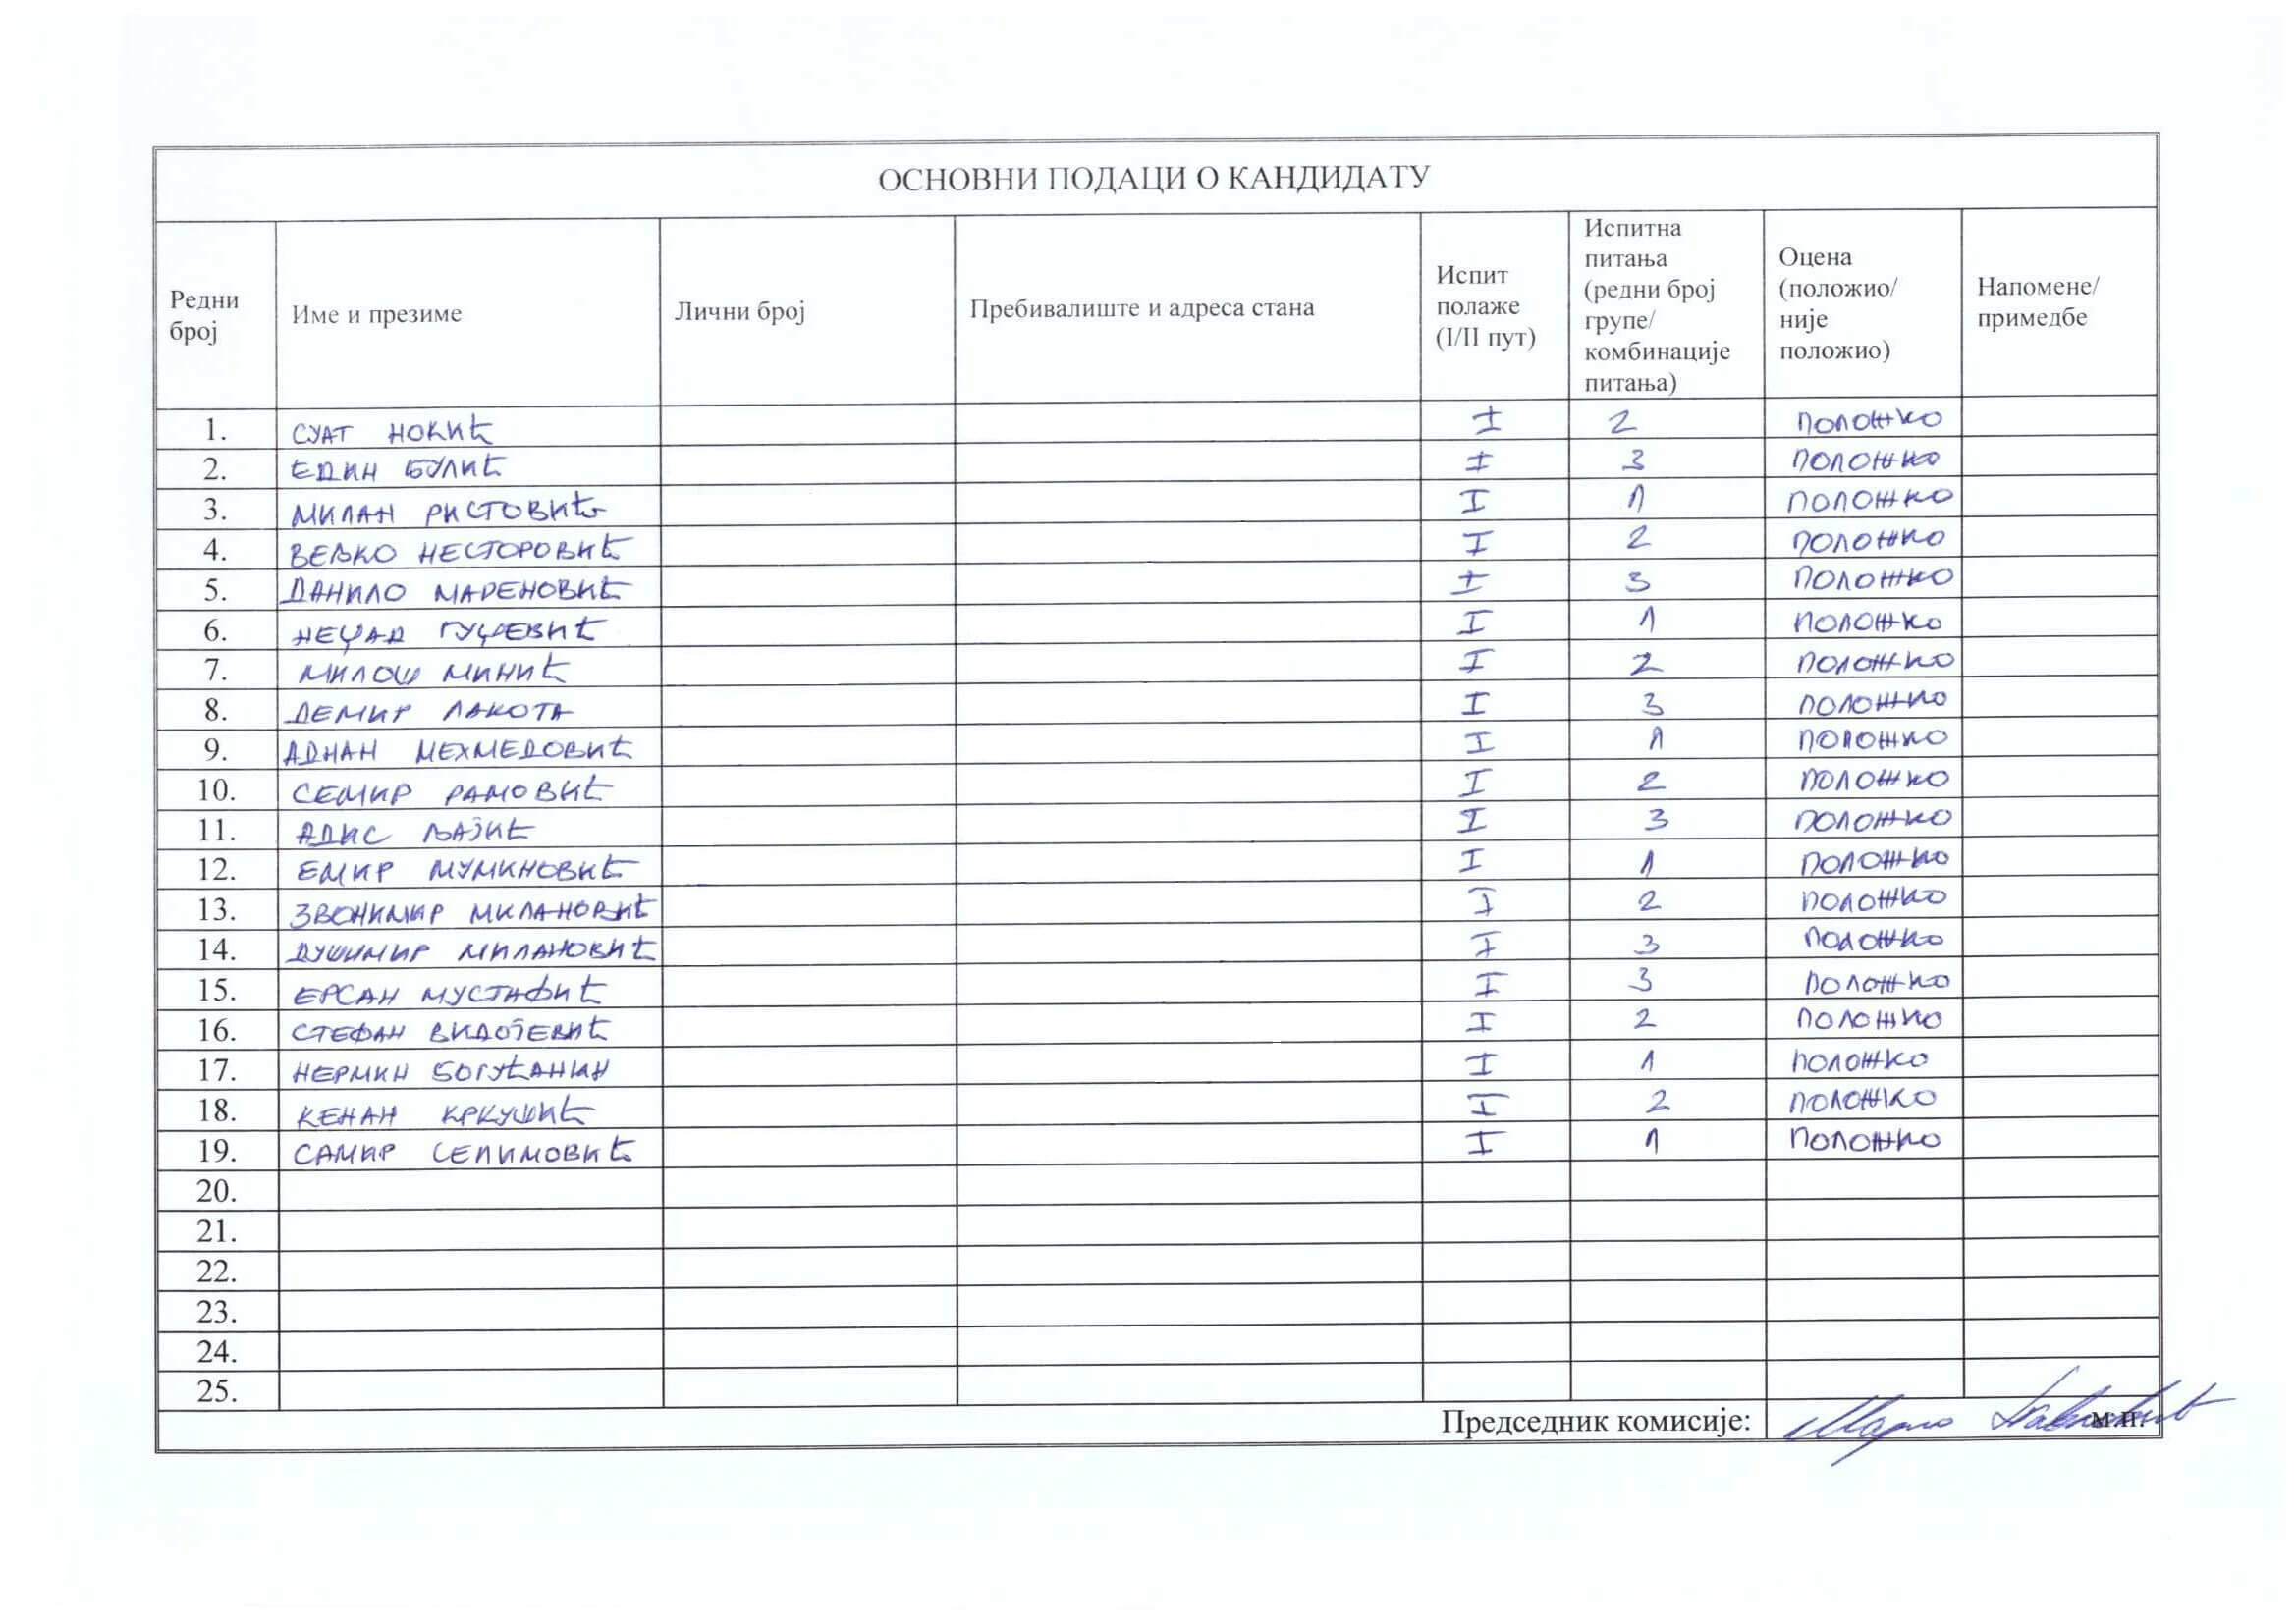 ОСНОВНИ ПОДАЦИ О КАНДИДАТУ
Редни број Име и презиме Лични број Пребивалиште и адреса стана Испит полаже (I/II пут) Испитна питања (редни број групе/ комбинације питања) Оцена (положио/ није положио) Напомене/ примедбе
1. СУАТ НОКИЋ I 2 ПОЛОЖИО
2. ЕДИН БУЛИЋ I 3 ПОЛОЖИО
3. МИЛАН РИСТОВИЋ I 1 ПОЛОЖИО
4. ВЕЉКО НЕСТОРОВИЋ I 2 ПОЛОЖИО
5. ДАНИЛО МАРЕНОВИЋ I 3 ПОЛОЖИО
6. НЕЏАД ГУЏЕВИЋ I 1 ПОЛОЖИО
7. МИЛОШ МИНИЋ I 2 ПОЛОЖИО
8. ДЕМИР ЛАКОТА I 3 ПОЛОЖИО
9. АДНАН МЕХМЕДОВИЋ I 1 ПОЛОЖИО
10. СЕМИР РАМОВИЋ I 2 ПОЛОЖИО
11. АДИС ЉАЈИЋ I 3 ПОЛОЖИО
12. ЕМИР МУМИНОВИЋ I 1 ПОЛОЖИО
13. ЗВОНИМИР МИЛАНОВИЋ I 2 ПОЛОЖИО
14. ДУШИМИР МИЛАНОВИЋ I 3 ПОЛОЖИО
15. ЕРСАН МУСТАФИЋ I 3 ПОЛОЖИО
16. СТЕФАН ВИДОЈЕВИЋ I 2 ПОЛОЖИО
17. НЕРМИН БОГУЋАНИН I 1 ПОЛОЖИО
18. КЕНАН КРКУШИЋ I 2 ПОЛОЖИО
19. САМИР СЕЛИМОВИЋ I 1 ПОЛОЖИО
20.
21.
22.
23.
24.
25.
Председник комисије: м.п.